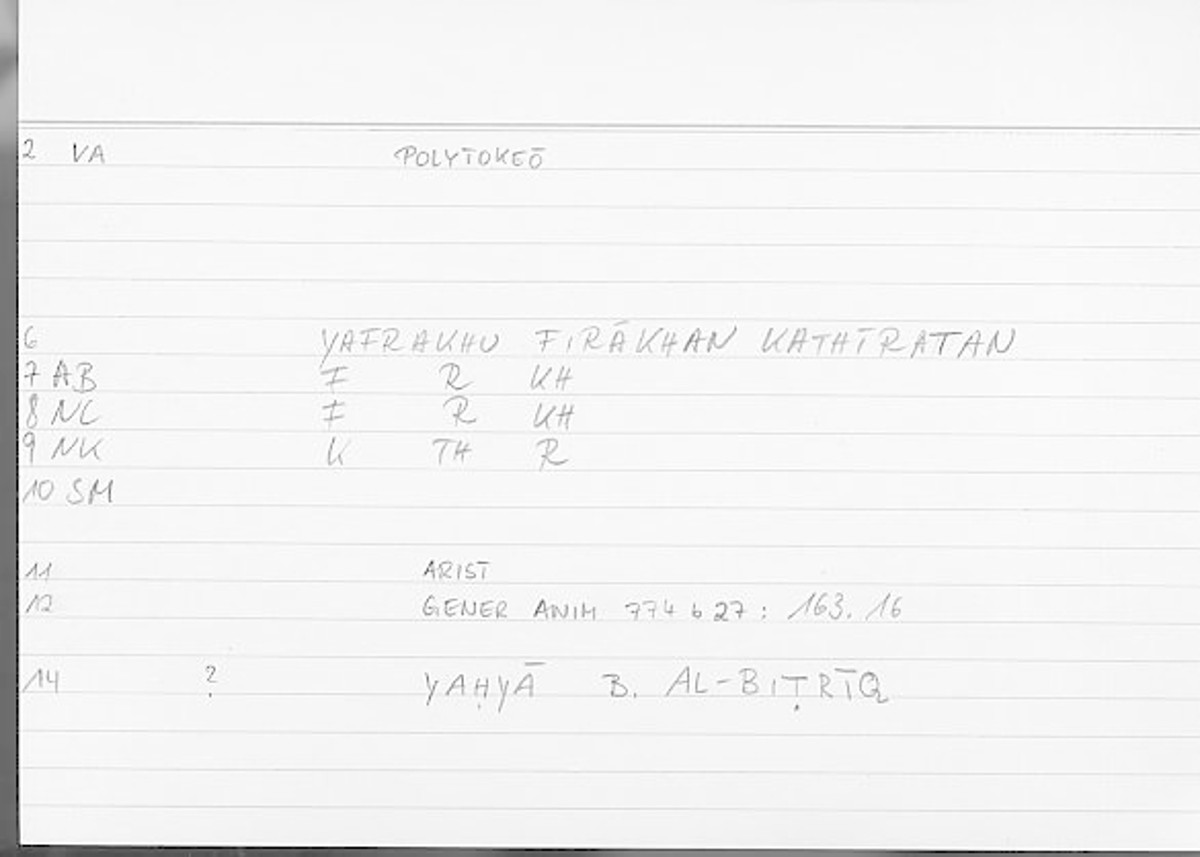 2 VA POLYTOKEŌ
6 YAFRAKHU FIRĀKHAN KATHĪRATAN
7 AB F R KH
8 NC F R KH
9 NK K TH R
10 SM
11 ARIST
12 GENER ANIM 774 b 27 : 163. 16
14 ? YAḤYĀ B. AL-BIṬRĪQ